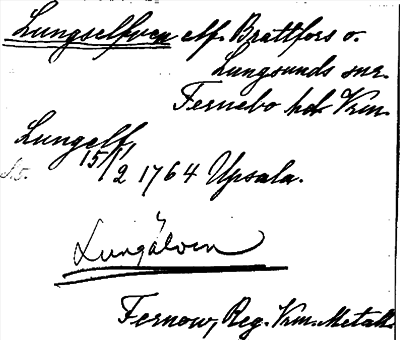 Lungselfven elf. Brattfors o.
Lungsunds snr.
Fernebo hd. Vrm.
Lungelf
15/12 1764 Upsala.
Lungälven
Fernow, Reg. Vrm. Metall.